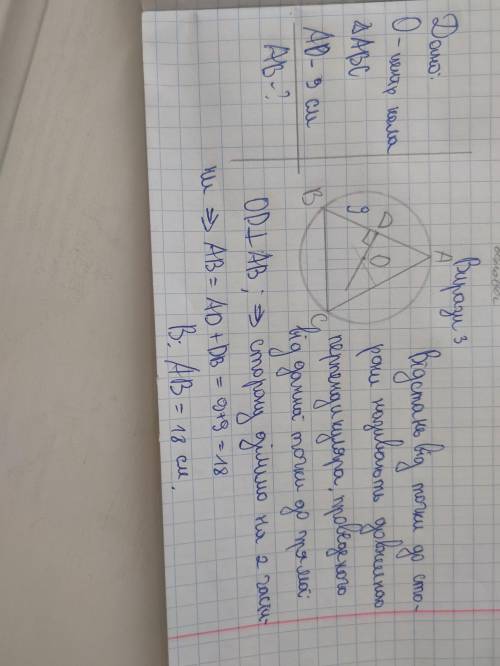 Дано:
О - центр кола
△ABC
AD - 9 см
AB - ?
Вправа 3
A
B
C
D
O
9
Відстань від точки до сто-
рони називають довжиною
перпендикуляра, проведеного
від даної точки до прямої
OD⊥AB; ⇒ сторону ділимо на 2 части-
ни ⇒ AB = AD + DB = 9+9 = 18
В: AB = 18 см.